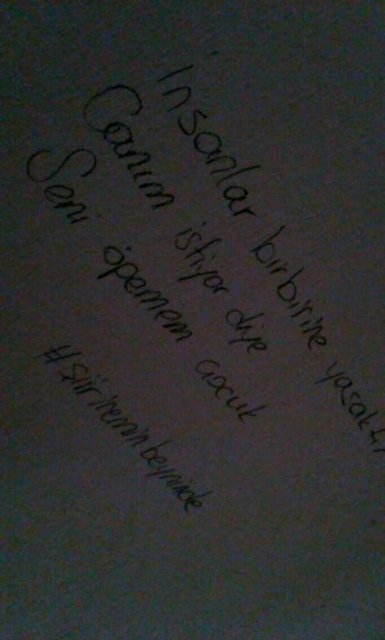 İnsanlar birbirine yasaktır
Canım istiyor diye
Seni öpemem çocuk
#şiirheminbeynnde